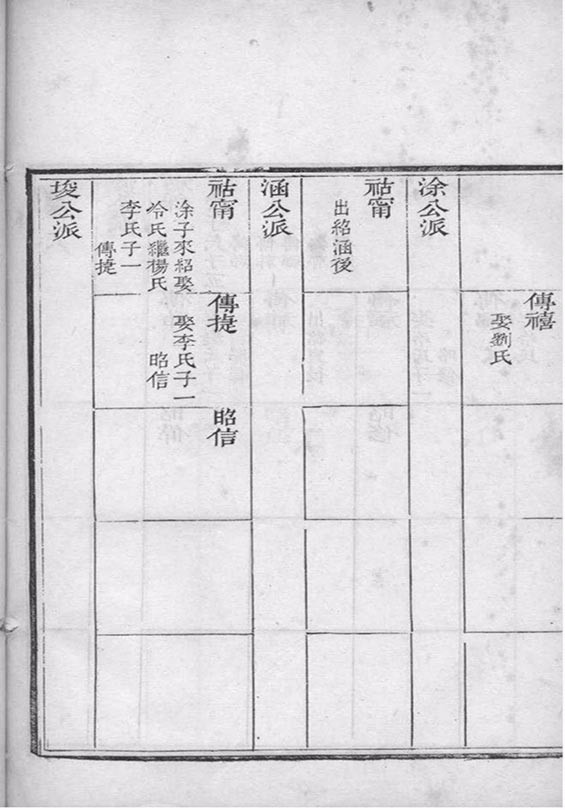 傳禧
娶劉氏
涂公派
祜甯
出紹涵後
涵公派
祜甯
涂子來紹娶
冷氏繼楊氏
李氏子一
傳捷
傳捷
娶李氏子一
昭信
昭信
埈公派